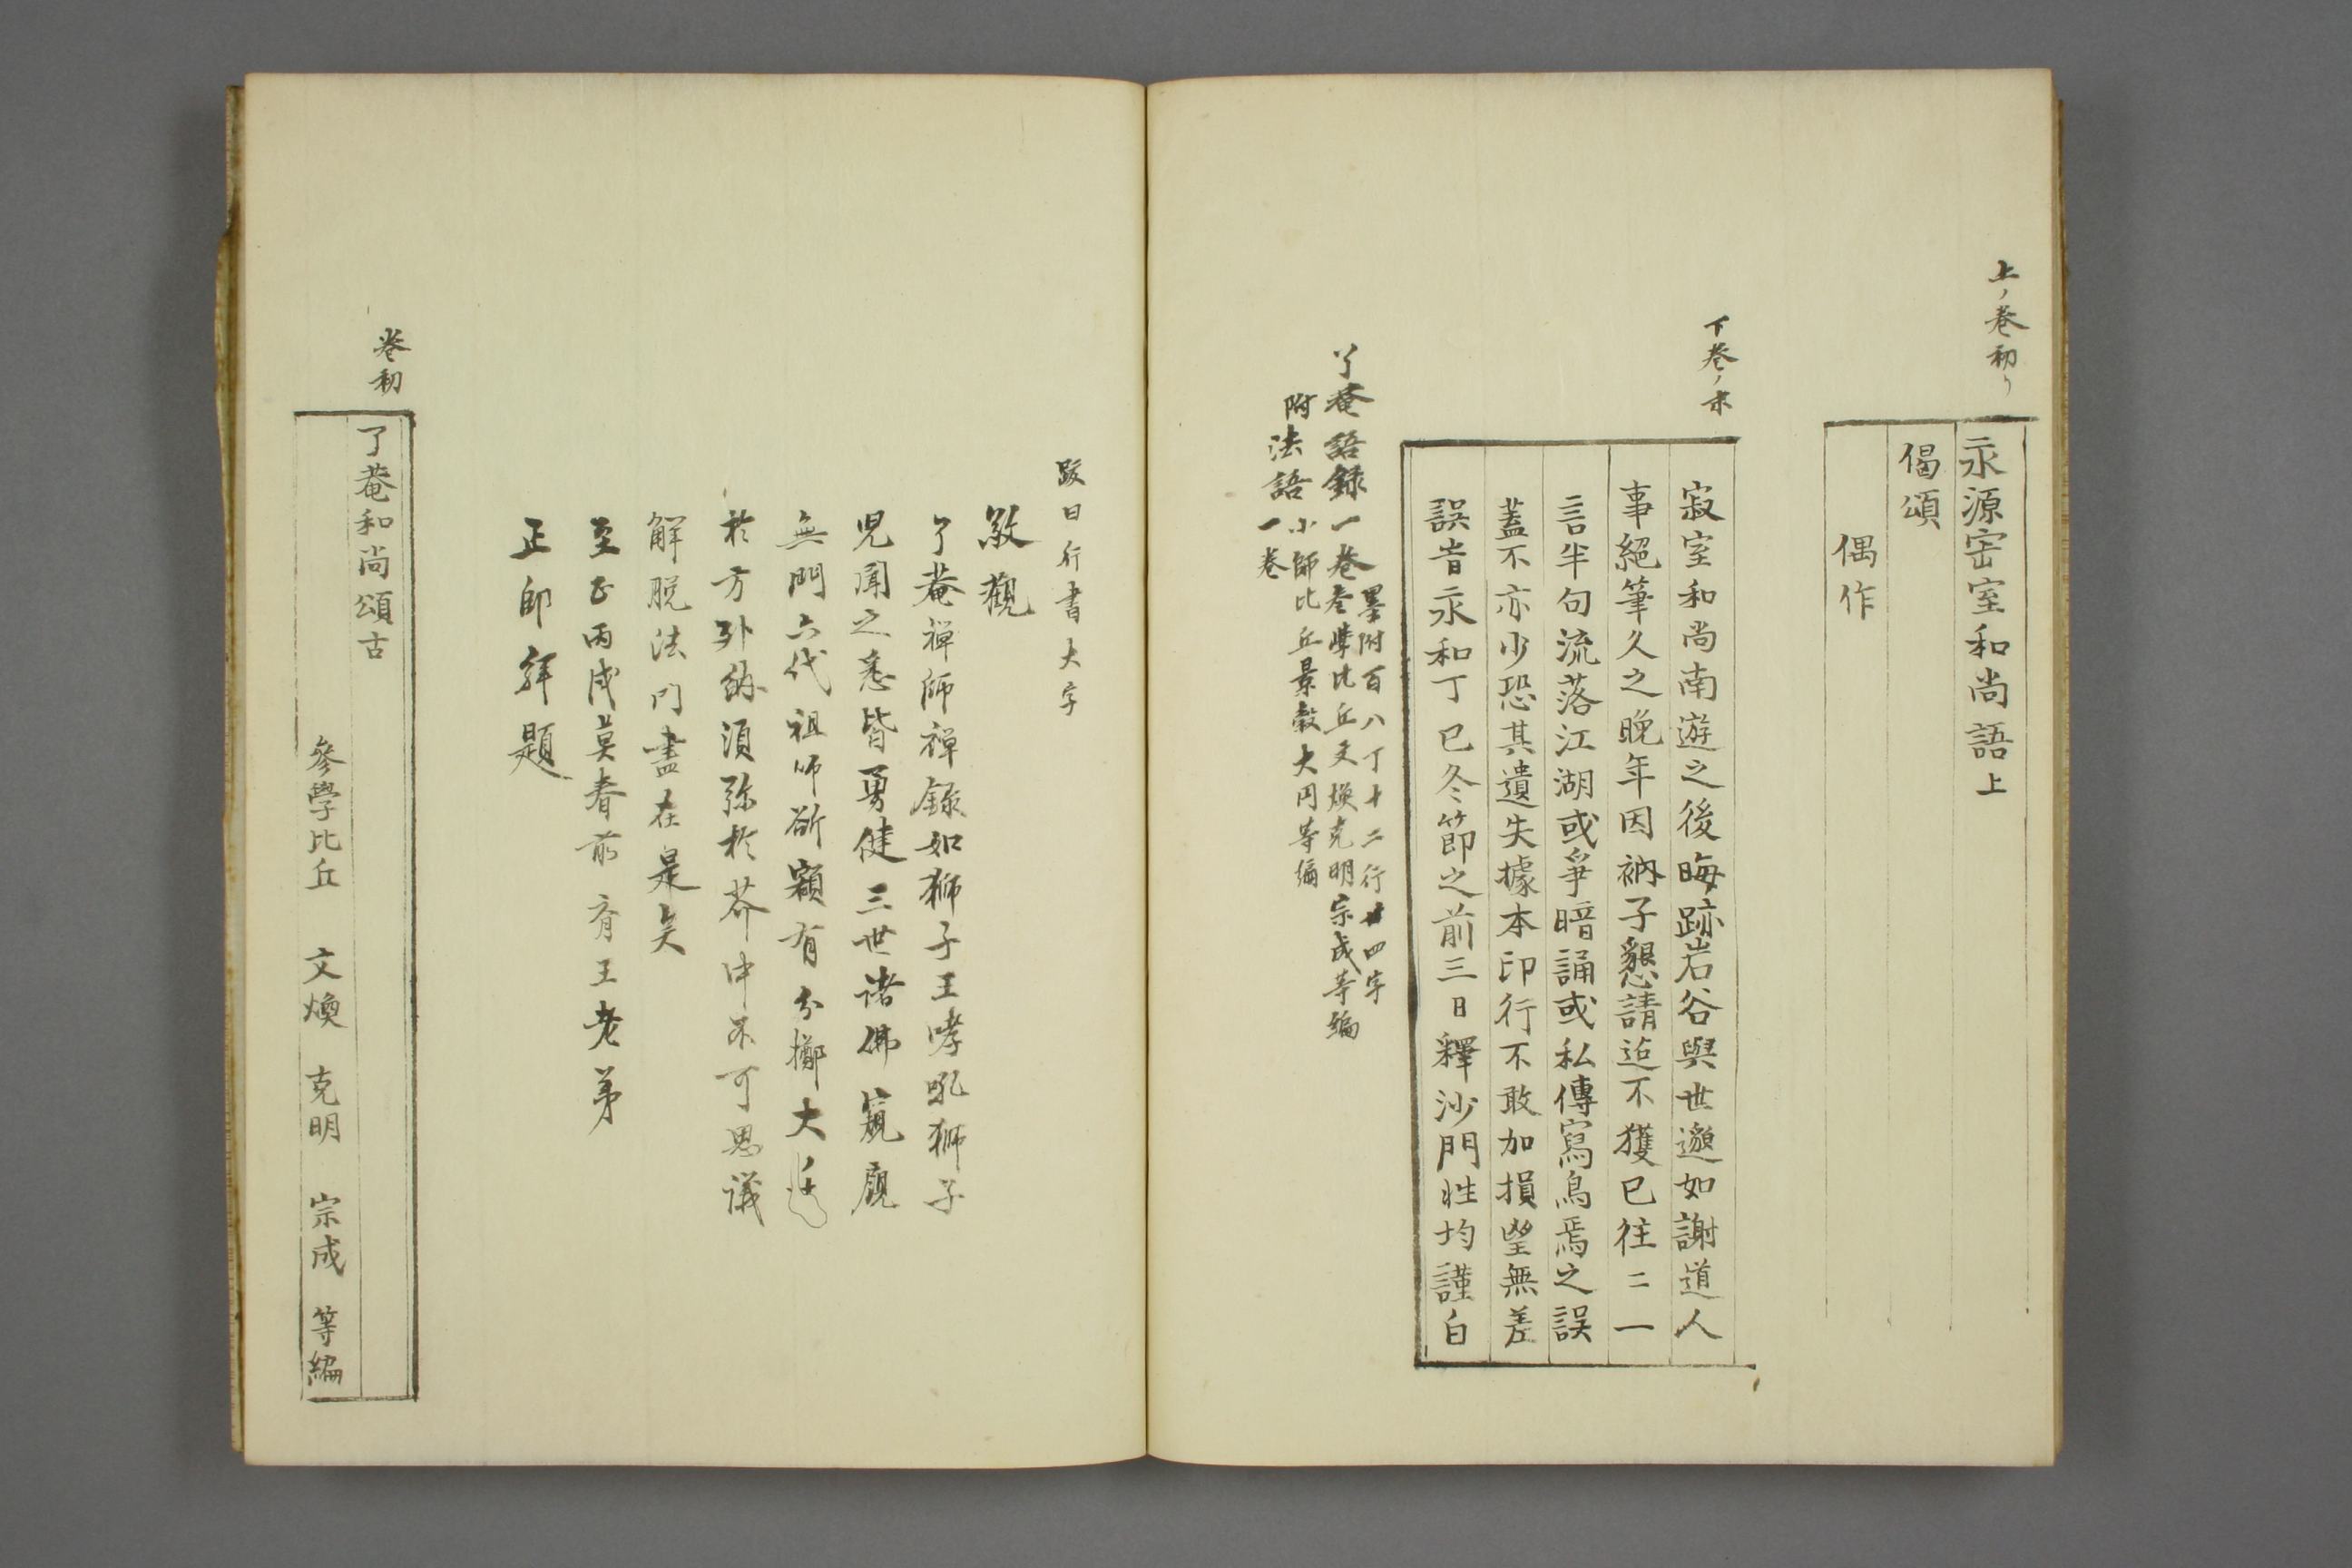 上ノ巻初リ
永源寂室和尚語上
偈頌
偶作
下巻ノ末
寂室和尚南遊之後晦跡岩谷與世邈如謝道人
事絕筆久之晚年因衲子懇請迫不獲已往〻一
言半句流落江湖或爭暗誦或私傳寫烏焉之誤
蓋不亦少恐其遺失據本印行不敢加損望無差
誤旹永和丁巳冬節之前三日釋沙門性均謹白
了菴語録一巻 墨附百八丁十二行廿四字
参學比丘文煥克明宗成等編
附法語一巻 小師比丘景㲄大円等編
跋曰行書大字
敬觀
了菴禅師禅録如獅子王哮吼獅子
児聞之悉皆勇健三世諸佛窺覷
無門六代祖師斫額有分擲大千
於方外納須弥於芥中不可思議
解脱法門盡在是矣
至正丙戌莫春前育王老弟
正印拜題
巻初
了菴和尚頌古
參學比丘 文煥 克明 宗成 等編